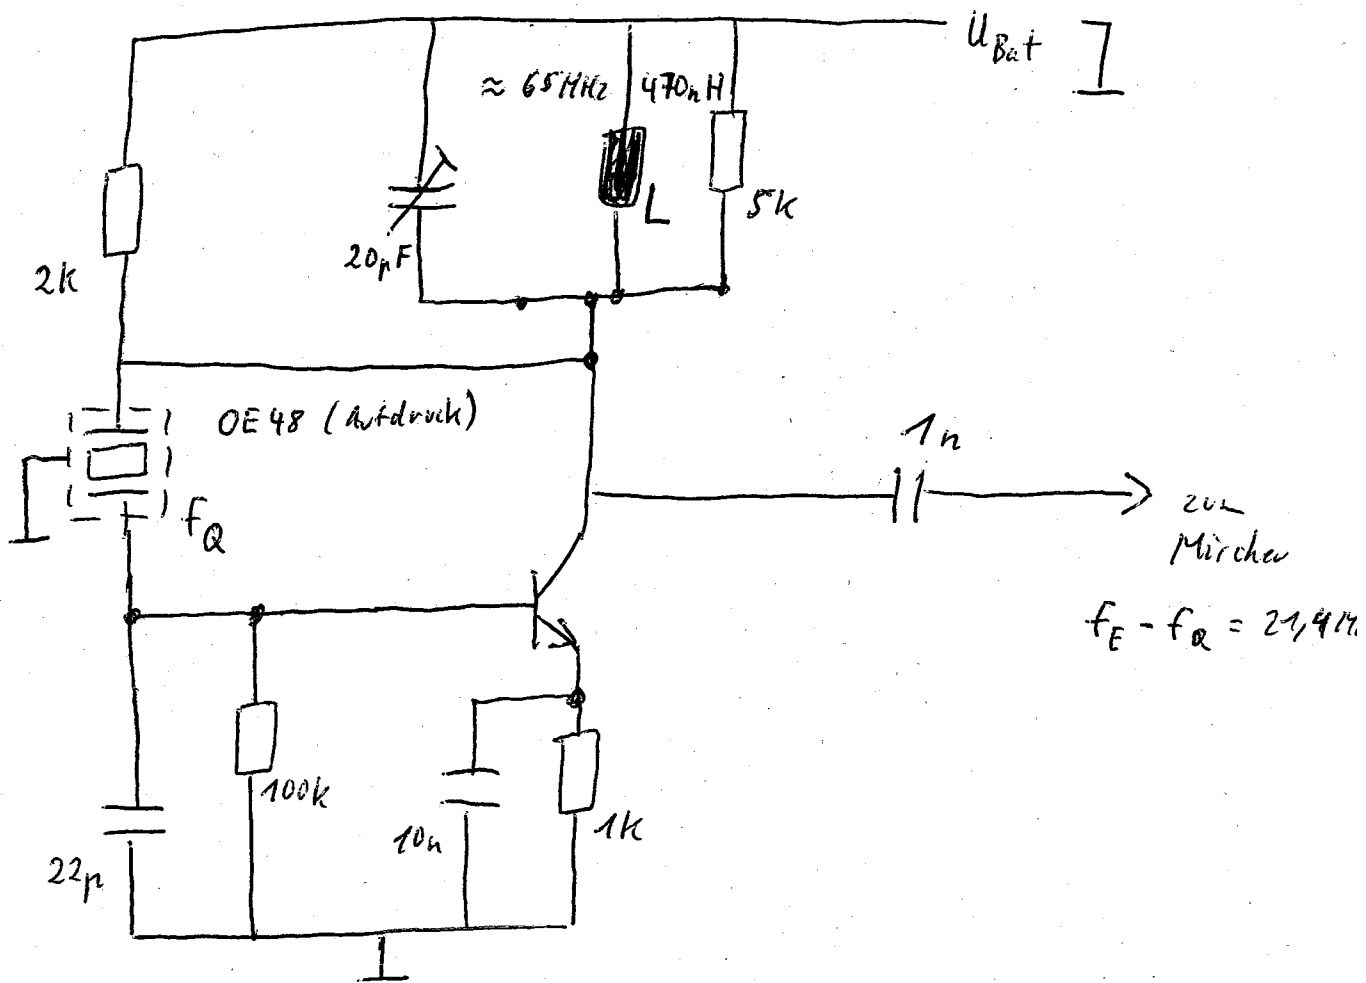 U_Bat
≈ 65MHz 470nH
L
5k
20pF
2k
OE48 (Aufdruck)
f_Q
1n
zum
Mischer
f_E - f_Q = 21,4 M
100k
10n
1k
22p